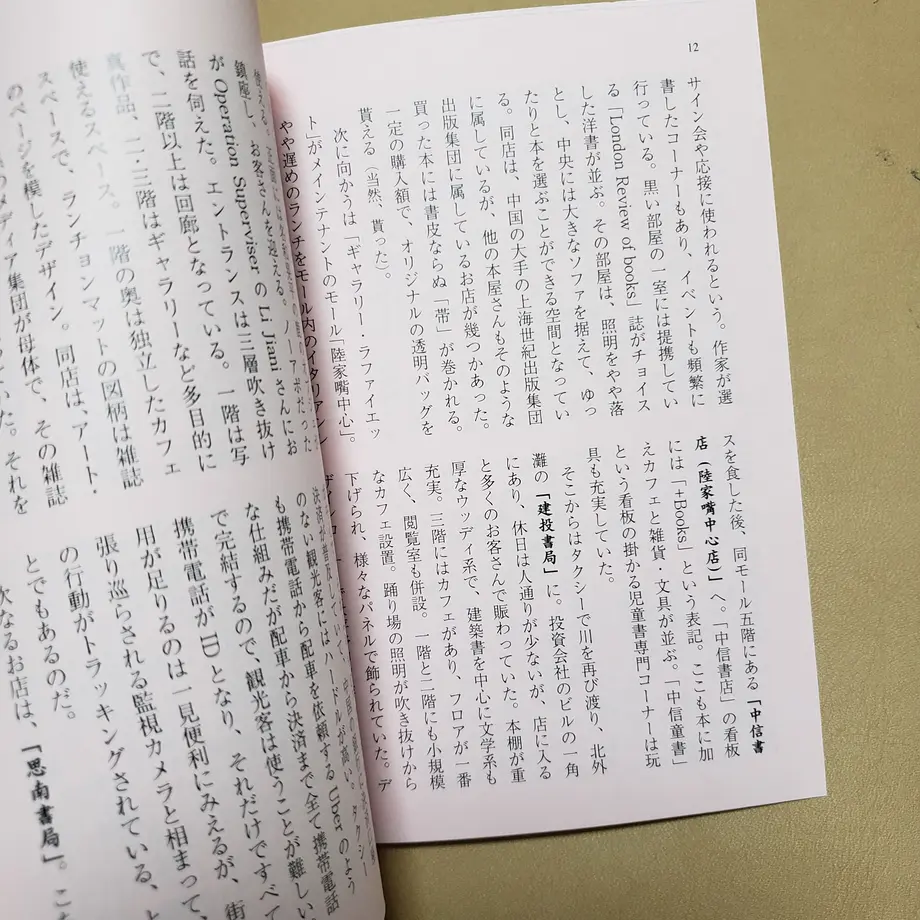 12
サイン会や応接に使われるという。作家が選
書したコーナーもあり、イベントも頻繁に
行っている。黒い部屋の一室には提携してい
る「London Review of books」誌がチョイス
した洋書が並ぶ。その部屋は、照明をやや落
とし、中央には大きなソファを据えて、ゆっ
たりと本を選ぶことができる空間となってい
る。同店は、中国の大手の上海世紀出版集団
に属しているが、他の本屋さんもそのような
出版集団に属しているお店が幾つかあった。
買った本には書皮ならぬ「帯」が巻かれる。
一定の購入額で、オリジナルの透明バッグを
貰える（当然、貰った）。
次に向かうは「ギャラリー・ラファイエッ
ト」がメインテナントのモール「陸家嘴中心」。
やや遅めのランチをモール内のイタリアン
スを食した後、同モール五階にある「中信書
店（陸家嘴中心店）」へ。「中信書店」の看板
には「+Books」という表記。ここも本に加
えカフェと雑貨・文具が並ぶ。「中信童書」
という看板の掛かる児童書専門コーナーは玩
具も充実していた。
そこからはタクシーで川を再び渡り、北外
灘の「建投書局」に。投資会社のビルの一角
にあり、休日は人通りが少ないが、店に入る
と多くのお客さんで賑わっていた。本棚が重
厚なウッディ系で、建築書を中心に文学系も
充実。三階にはカフェがあり、フロアが一番
広く、閲覧室も併設。一階と二階にも小規模
なカフェ設置。踊り場の照明が吹き抜けから
下げられ、様々なパネルで飾られていた。デ
鎮座し、お客さんを迎える。ノーアポだった
が Operation Superviser の Li Jiani さんにお
話を伺えた。エントランスは三層吹き抜け
で、二階以上は回廊となっている。一階は写
真作品、二・三階はギャラリーなど多目的に
使えるスペース。一階の奥は独立したカフェ
スペースで、ランチョンマットの図柄は雑誌
のページを模したデザイン。同店は、アート・
メディア集団が母体で、その雑誌
それを
決済が普及していて、
のない観光客にはハードルが高い。タクシー
も携帯電話から配車を依頼する Uber のよう
な仕組みだが配車から決済まで全て携帯電話
で完結するので、観光客は使うことが難しい
携帯電話が ID となり、それだけですべて
用が足りるのは一見便利にみえるが、街
張り巡らされる監視カメラと相まって、
の行動がトラッキングされている、
とでもあるのだ。
次なるお店は、「思南書局」。